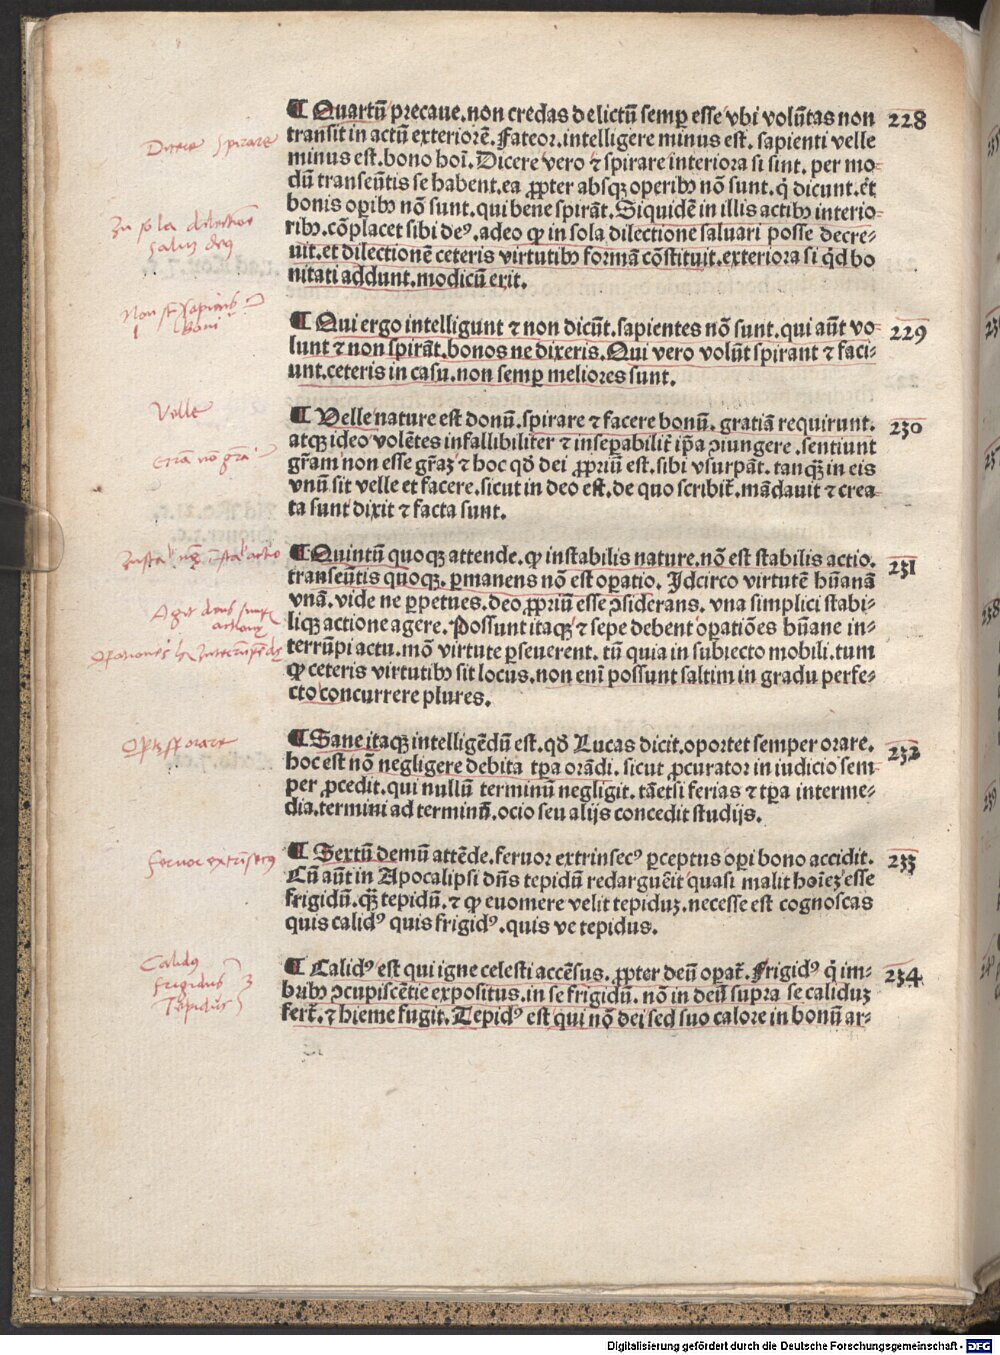 ¶ Quartū precaue. non credas delictū semꝑ esse vbi volūtas non 228
transit in actū exteriorē. Fateor. intelligere minus est. sapienti velle
minus est. bono hoī. Dicere vero ⁊ spirare interiora si sint. per mo-
dū transeūtis se habent. ea ꝓpter absqꝫ operibꝰ nō sunt. q̇ dicunt. et
bonis oꝑibꝰ nō sunt. qui bene spirāt. Siquidē in illis actibꝰ interio-
ribꝰ. cōplacet sibi deꝰ. adeo ꝙ in sola dilectione saluari posse decre-
uit. et dilectionē ceteris virtutibꝰ formā cōstituit. exteriora si qd bo
nitati addunt. modicū erit.
¶ Qui ergo intelligunt ⁊ non dicūt. sapientes nō sunt. qui aūt vo- 229
lunt ⁊ non spirāt. bonos ne dixeris. Qui vero volūt spirant ⁊ faci-
unt. ceteris in casu. non semꝑ meliores sunt.
¶ Velle nature est donū. spirare ⁊ facere bonū. gratiā requirunt. 230
atqꝫ ideo volētes infallibiliter ⁊ inseꝑabilir̄ ip̄a ꝯiungere. sentiunt
gr̄am non esse gr̄aꝫ ⁊ hoc qd̄ dei ꝓpriū est. sibi vsurpāt. tanqꝫ̄ in eis
vnū sit velle et facere. sicut in deo est. de quo scribit̄. mādauit ⁊ crea
ta sunt dixit ⁊ facta sunt.
¶ Quintū quoqꝫ attende. ꝙ instabilis nature. nō est stabilis actio. 231
transeūtis quoqꝫ. ꝑmanens nō est oꝑatio. Idcirco virtutē hūanā
vnā. vide ne ꝑpetues. deo ꝓpriū esse ꝯsiderans. vna simplici stabi-
liqꝫ actione agere. Possunt itaqꝫ ⁊ sepe debent oꝑatiōes hūane in-
terrūpi actu. mō virtute ꝑseuerent. tū quia in subiecto mobili. tum
ꝙ ceteris virtutibꝰ sit locus. non enī possunt saltim in gradu perfe-
cto concurrere plures.
¶ Sane itaqꝫ intelligēdū est. qd̄ Lucas dicit. oportet semper orare. 232
hoc est nō negligere debita tꝑa orādi. sicut ꝓcurator in iudicio sem
per ꝓcedit. qui nullū terminū negligit. tāetsi ferias ⁊ tꝑa interme-
dia. termini ad terminū. ocio seu alijs concedit studijs.
¶ Sextū demū attēde. feruor extrinsecꝰ ꝑceptus oꝑi bono accidit. 233
Cū aūt in Apocalipsi dn̄s tepidū redarguēit quasi malit hoīeꝫ esse
frigidū. qꝫ̄ tepidū. ⁊ ꝙ euomere velit tepiduꝫ. necesse est cognoscas
quis calidꝰ quis frigidꝰ. quis ve tepidus.
¶ Calidꝰ est qui igne celesti accēsus. ꝓpter deū oꝑat̄. Frigidꝰ q̇ im- 234
bribꝰ ꝯcupiscētie expositus. in se frigidū. nō in deū supra se caliduꝫ
fert̄. ⁊ hieme fugit. Tepidꝰ est qui nō dei sed suo calore in bonū ar-
Dicere spirare
In sola dilectione
saluꝰ deꝰ
Non st sapientes
boni
Velle
Oportꝫ sꝑ orare
feruor extrīsecꝰ
Calidꝰ
frigidus
Tepidus
Digitalisierung gefördert durch die Deutsche Forschungsgemeinschaft - DFG